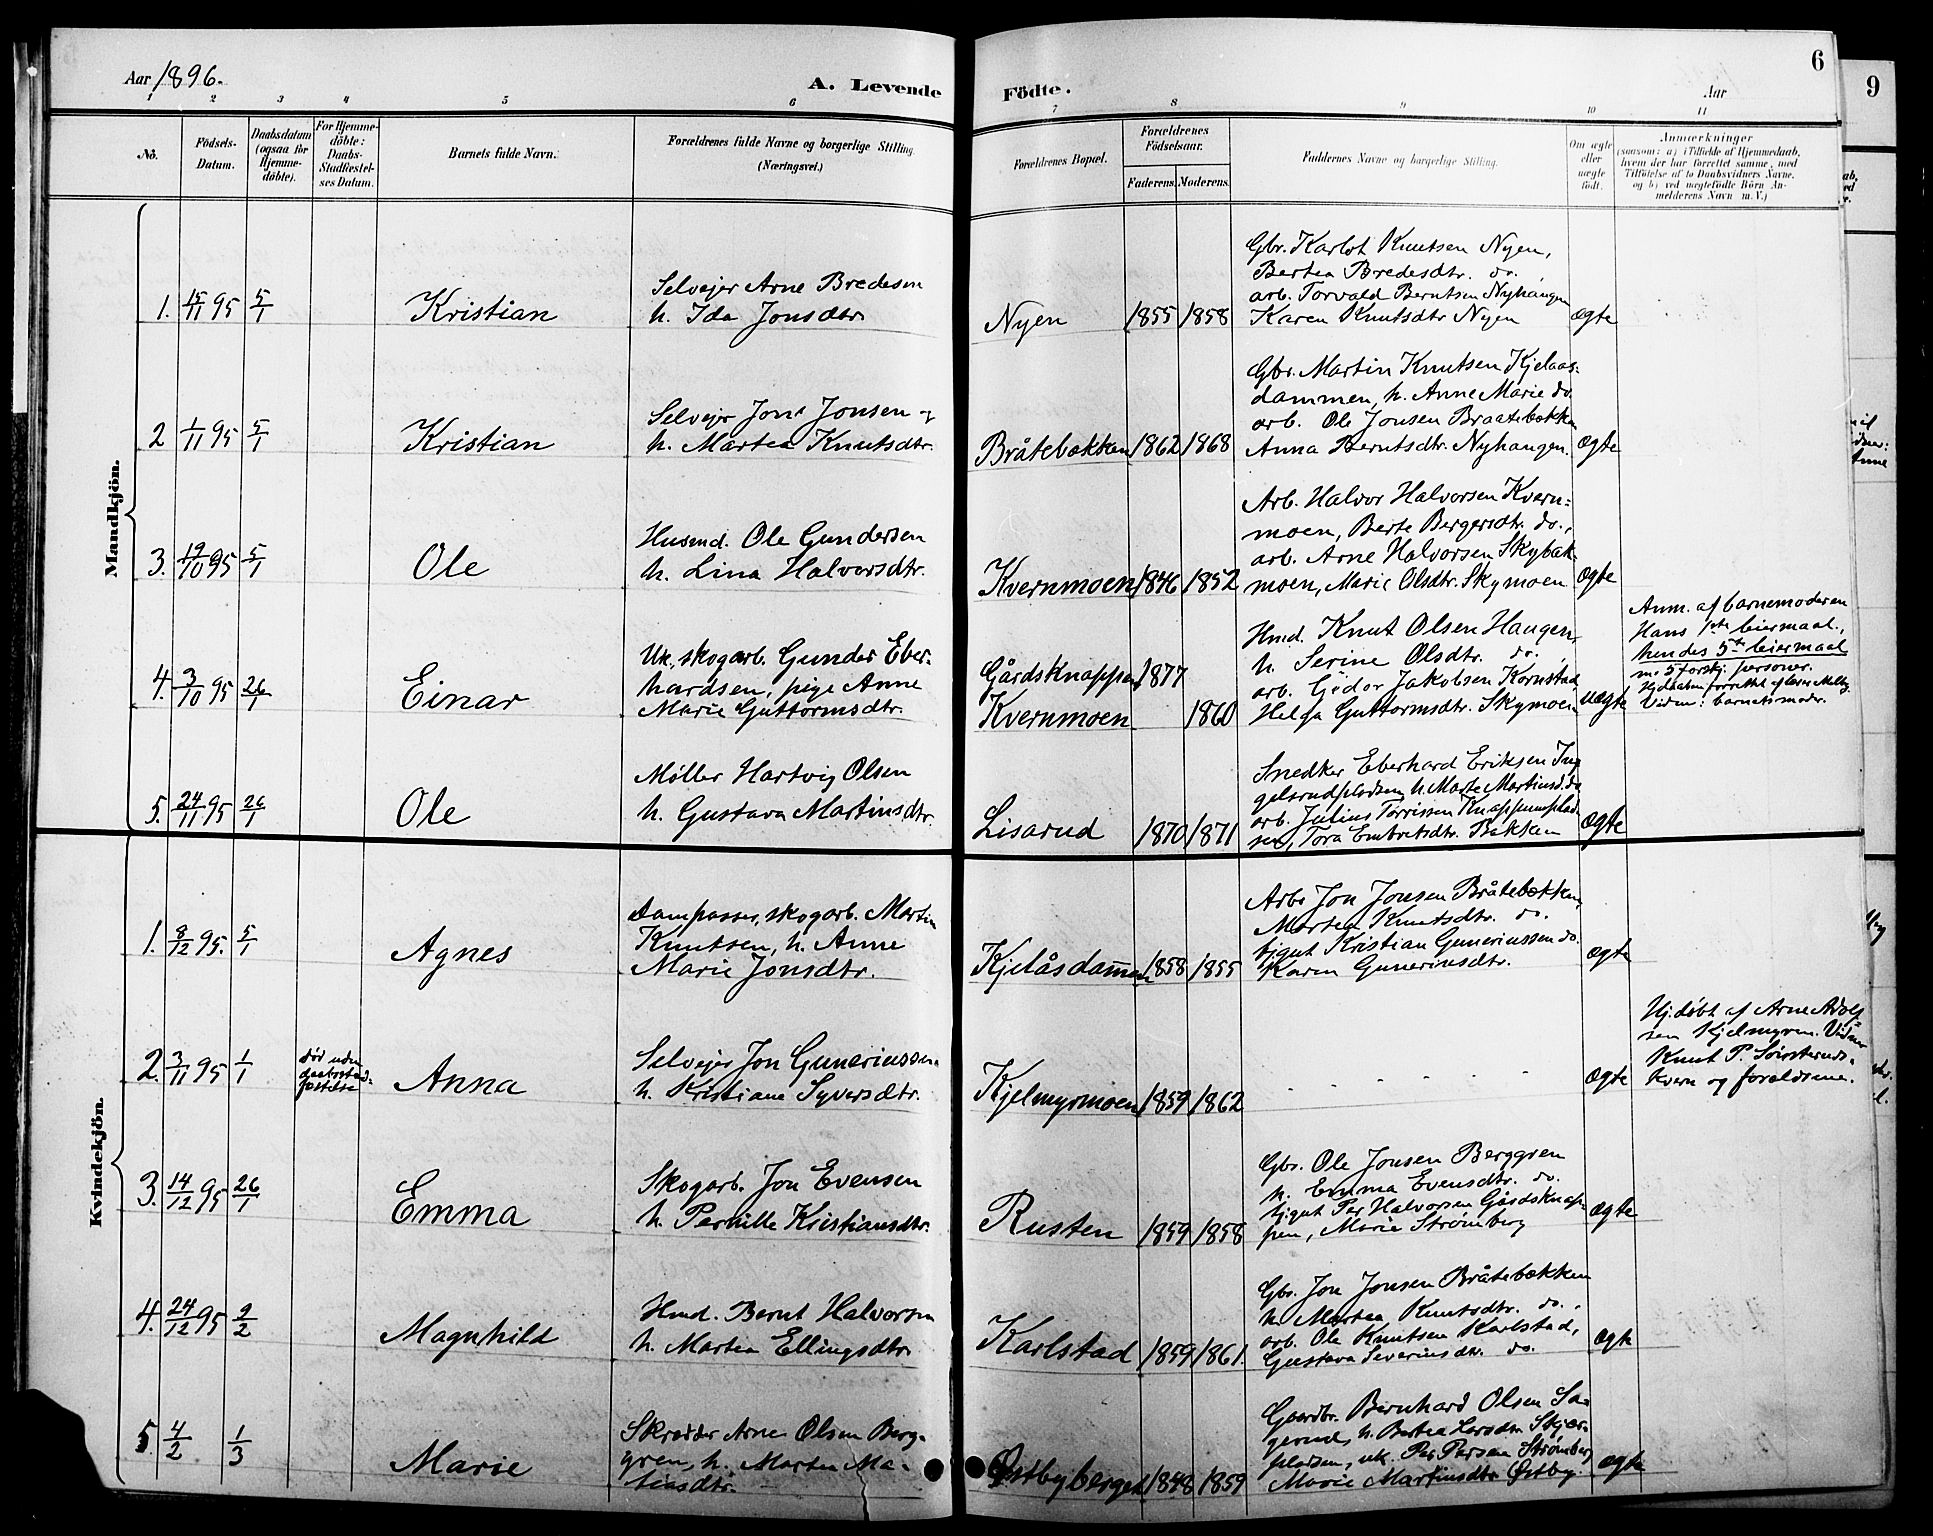 Aar 1896.
A. Levende
Födte.
Aar
6
9
1 2 3 4 5 6 7 8 9 10 11
No.
Födsels-
Datum.
Daabsdatum
(ogsaa for
Hjemme-
döbte).
For Hjemme-
döbte:
Daabs-
Stadfæstel-
ses Datum.
Barnets fulde Navn.
Forældrenes fulde Navne og borgerlige Stilling
(Næringsvei.)
Forældrenes Bopæl.
Forældrenes
Födselsaar.
Faderens. Moderens.
Faddernes Navne og borgerlige Stilling.
Om ægte
eller
uægte
födt.
Anmærkninger
(saasom: a) i Tilfælde af Hjemmedaab,
hvem der har forrettet samme, med
Tilföielse af to Daabsvidners Navne,
og b) ved uægtefödte Börn An-
melderens Navn m. V.)
Mandkjön.
1. 15/11 95 5/1
Kristian
Selvejer Arne Bredesen
h. Ida Jonsdtr.
Nyen 1855 1858
Gbr. Karlot Knutsen Nyen,
Bertea Bredesdtr. do.,
arb. Torvald Berntsen Nyhangen
Karen Knutsdtr Nyen
ægte
2 1/11 95 5/1
Kristian
Selvejer Jon Jonsen og
h. Martea Knutsdtr.
Bråtebækken 1862 1868
Gbr. Martin Knutsen Kjelaas-
dammen, h. Anne Marie do.
arb. Ole Jonsen Braatebækken
Anna Berntsdtr. Nyhangen.
ægte
3. 19/10 95 5/1
Ole
Husmd. Ole Gundersen
h. Lina Halvorsdtr.
Kvernmoen 1846 1852
Arb. Halvor Halvorsen Kvern-
moen, Berte Bergersdtr. do.,
arb. Arne Halvorsen Skybak-
moen, Marie Olsdtr. Skymoen
ægte
4. 3/10 95 26/1
Einar
Uk. skogarb. Gunder Eber-
hardsen, pige Anne
Marie Guttormsdtr.
Gårdsknappen 1877
Kvernmoen 1860
Hmd. Knut Olsen Haugen,
h. Serine Olsdtr. do.,
arb. Gedor Jakobsen Kornstad,
Helga Guttormsdtr. Skymoen
uægte
Anm. af barnemoderen
Hans 1ste leiermaal,
hendes 5te leiermaal
m. 5 forskj. personer.
Vidner: barnets moder.
5. 24/11 95 26/1
Ole
Møller Hartvig Olsen
h. Gustava Martinsdtr.
Lisarud 1870 1871
Snedker Eberhard Eriksen In-
gelsrudpladsen, h. Marte Martinsd. do
arb. Julius Torrissen Knappumplad-
sen, Tora Embretsdtr. Bakken
ægte
Kvindekjön.
1. 8/12 95. 5/1
Agnes
Dampasser, skogarb. Martin
Knutsen, h. Anne
Marie Jonsdtr.
Kjelåsdammen 1858 1855
Arb. Jon Jonsen Bråtebækken,
Martea Knutsdtr. do.
tjgut Kristian Guneriussen do.
Karen Guneriusdtr.
ægte
2. 3/11 95 1/1
død uden
daabsstad-
fæstelse
Anna
Selvejer Jon Guneriussen
h. Kristiane Syversdtr.
Kjelmyrmoen 1859 1862
ægte
Hj. døbt af Arne Adolf-
sen Kjelmyren. Vidner
Knut P. Sørsteruds-
kvern og forældrene.
3. 14/12 95 26/1
Emma
Skogarb. Jon Evensen
h. Pernille Kristiansdtr.
Rusten 1859 1858
Gbr. Ole Jonsen Berggren
h. Emma Evensdtr. do.
tjgut Per Halvorsen Gårdsknap-
pen, Marie Strømberg
ægte
4. 24/12 95 9/2
Magnhild
Hmd. Bernt Halvorsen
h. Martea Ellingsdtr.
Karlstad 1859 1861.
Gbr. Jon Jonsen Bråtebækken
h. Martea Knutsdtr. do.,
arb. Ole Knutsen Karlstad,
Gustava Severinsdtr. do.
ægte
5. 4/2 1/3
Marie
Skrædder Arne Olsen Berg-
gren, h. Marte Ma-
tiasdtr.
Østbyberget 1848 1859
Gaardbr. Bernhard Olsen Sa-
gerud, h. Bertea Larsdtr. Skjær-
pladsen, uk. Per Persen Strømberg
Marie Martinsdtr Østby.
ægte